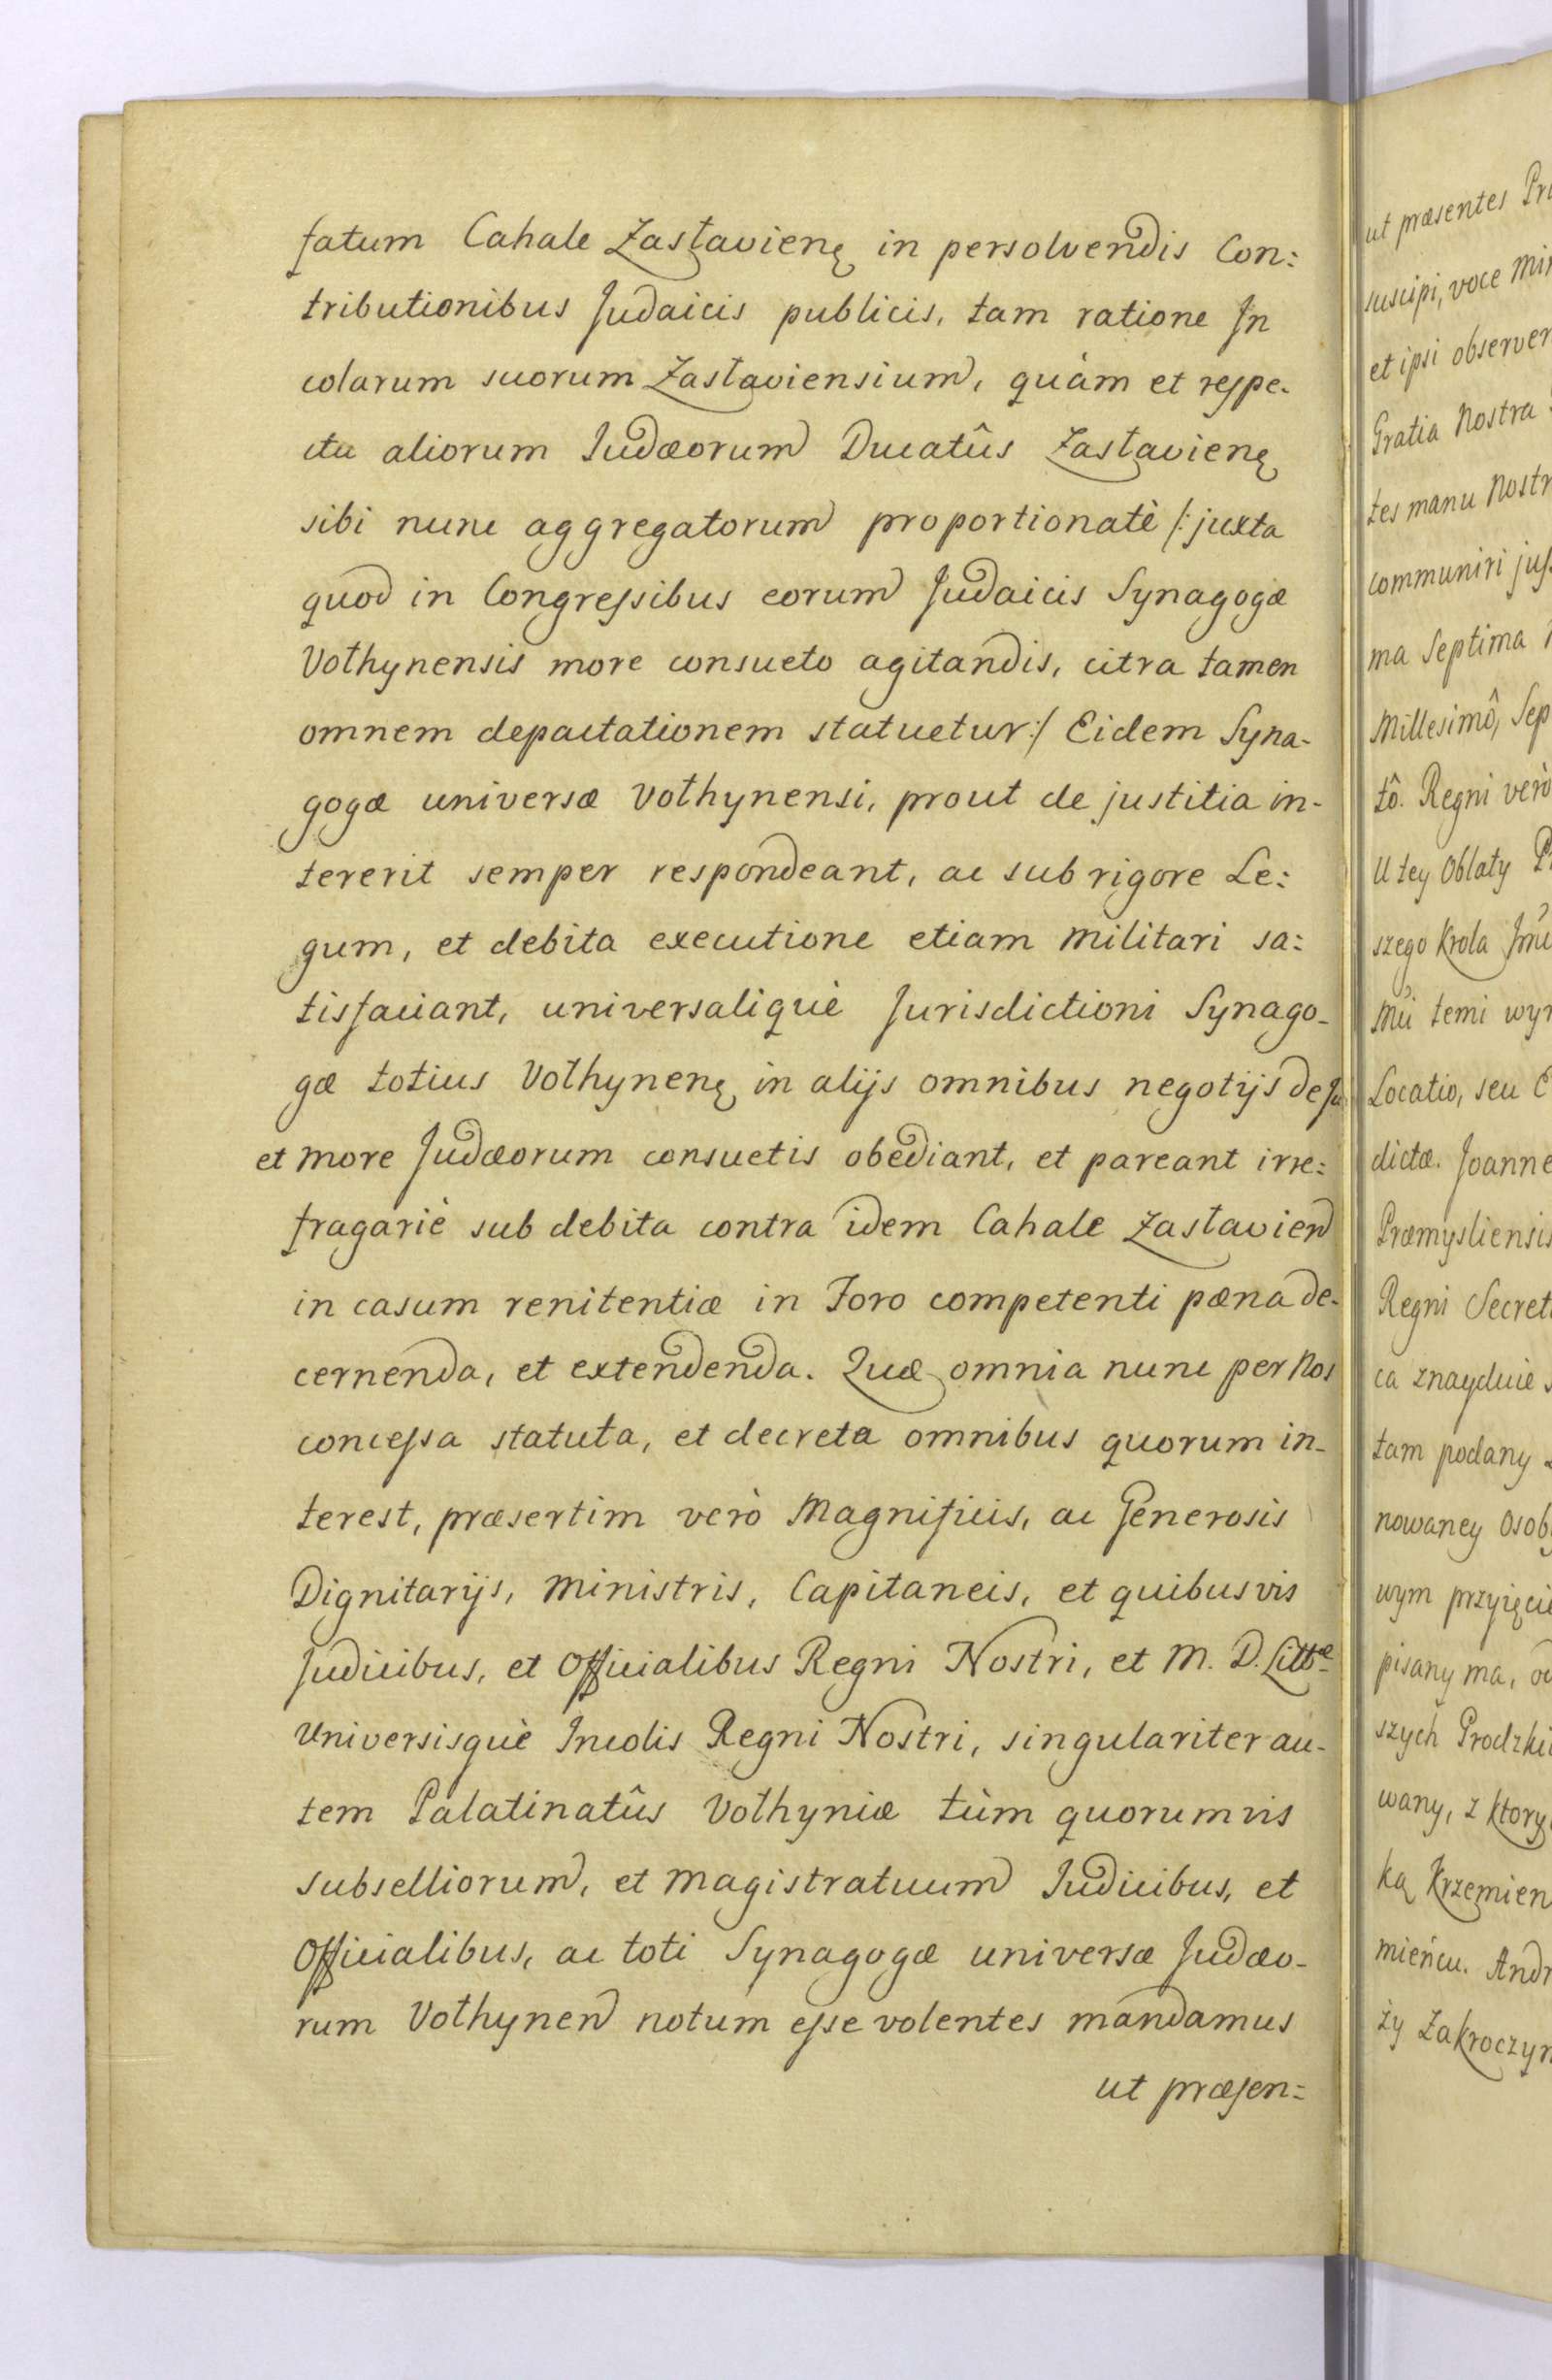 fatum Cahale Zasłavienę in persolvendis Con:
tributionibus Judaicis publicis, tam ratione In
colarum suorum Zasłaviensium, quàm et respe-
ctu aliorum Judæorum Ducatûs Zasłavienę
sibi nunc aggregatorum proportionatè /: juxta
quod in Congressibus eorum Judaicis Synagogæ
Vołhynensis more consueto agitandis, citra tamen
omnem depactationem statuetur :/ Eidem Syna-
gogæ universæ Vołhynensi, prout de justitia in-
tererit semper respondeant, ac sub rigore Le:
gum, et debita executione etiam militari sa:
tisfaciant, universaliquè Jurisdictioni Synago-
gæ totius Vołhynenę in alijs omnibus negotijs de Ju
et more Judæorum consuetis obediant, et pareant irre:
fragariè sub debita contra idem Cahale Zasłavien
in casum renitentiæ in Foro competenti pæna de-
cernenda, et extendenda. Quæ omnia nunc per Nos
concessa statuta, et decreta omnibus quorum in-
terest, præsertim verò Magnificis, ac Generosis
Dignitarijs, Ministris, Capitaneis, et quibusvis
Judicibus, et Officialibus Regni Nostri, et M. D. Littæ
Universisquè Incolis Regni Nostri, singulariter au-
tem Palatinatûs Vołhyniæ tùm quorumvis
subselliorum, et Magistratuum Judicibus, et
Officialibus, ac toti Synagogæ universæ Judæo-
rum Vołhynen notum esse volentes mandamus
ut præsen:
ut præsentes
suscipi, voce
et ipsi observen
Gratia Nostra
tes manu Nostr
communiri jus
ma Septima
Millesimô, Sep
tô. Regni verò
U tey Oblaty
szego Krola
temi
Locatio, seu
dictæ. Joanne
Præmysliensis
Regni Secret
ca znayduie
tam podany
nowaney osob
wym przyięci
pisany ma,
szych Grodzki
wany, z ktory
ką Krzemien
mieńcu. Andr
ży Zakroczym